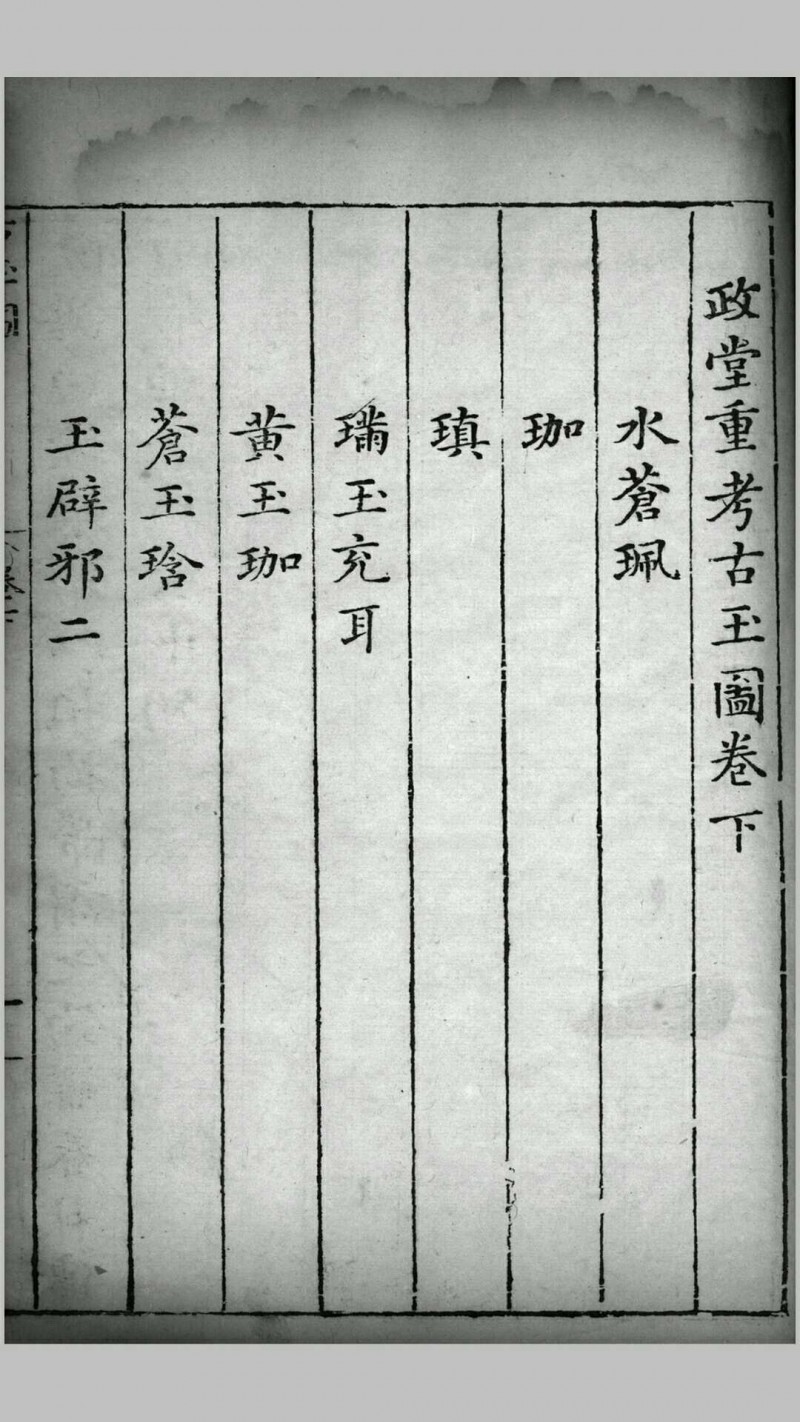 政堂重考古玉圖卷下
水蒼珮
珈
瑱
璊玉充耳
黃玉珈
蒼玉琀
玉辟邪二